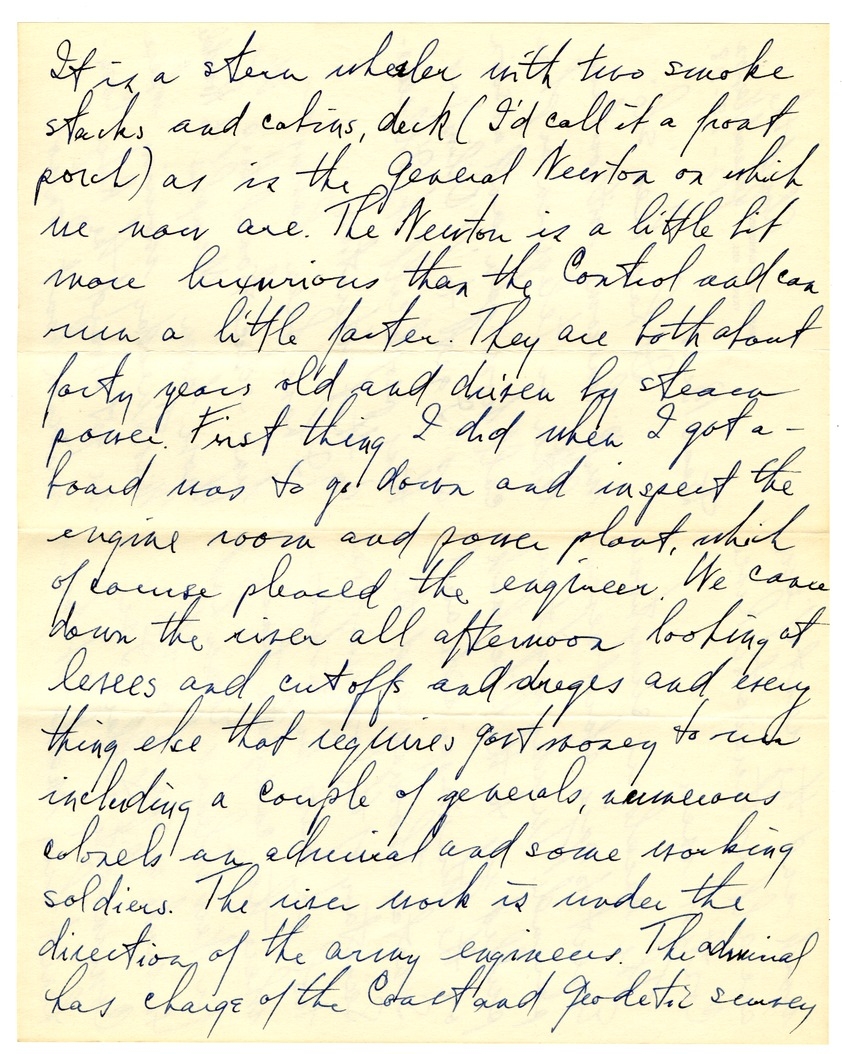 It is a stern wheeler with two smoke
stacks and cabins, deck (I'd call it a front
porch) as is the General Newton on which
we now are. The Newton is a little bit
more luxurious than the Control and can
run a little faster. They are both about
forty years old and driven by steam
power. First thing I did when I got a-
board was to go down and inspect the
engine room and power plant, which
of course pleased the engineer. We came
down the river all afternoon looking at
levees and cutoffs and dreges and every
thing else that requires govt money to run
including a couple of generals, numerous
colonels an admiral and some working
soldiers. The river work is under the
direction of the army engineers. The admiral
has charge of the Coast and Geodetic survey